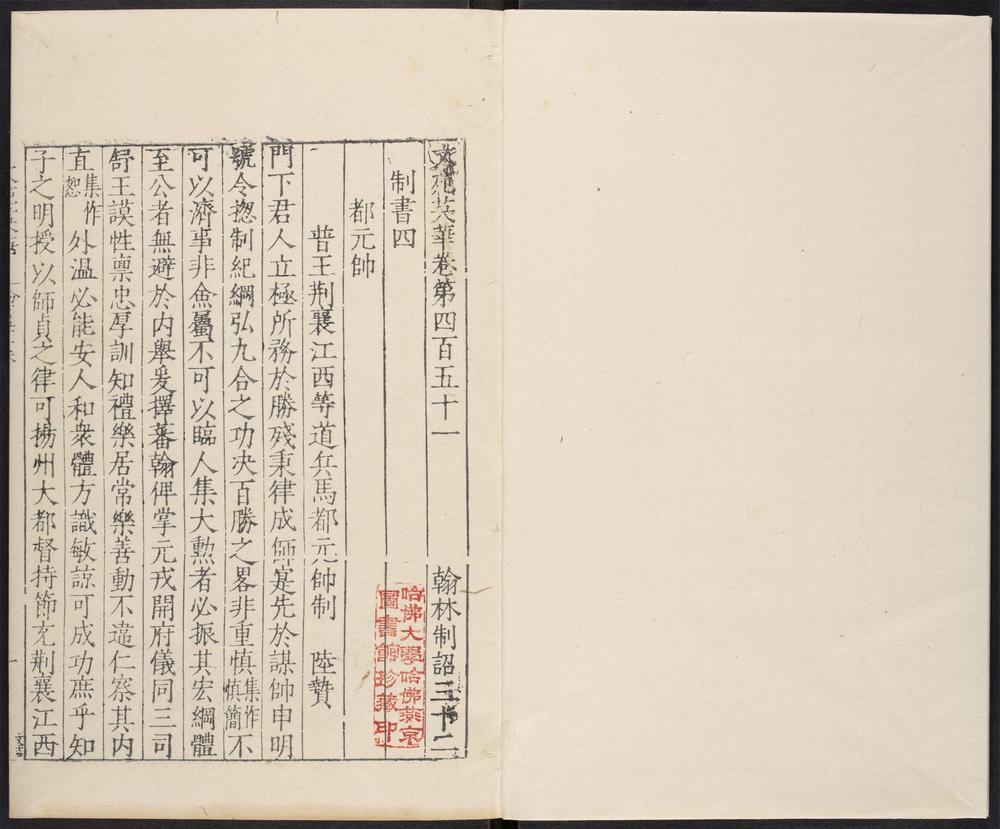 文苑英華卷第四百五十一 翰林制詔三十二
制書四
都元帥
普王荆襄江西等道兵馬都元帥制 陸贄
門下君人立極所務於勝殘秉律成師寔先於謀帥申明
號令揔制紀綱弘九合之功决百勝之畧非重慎集作慎簡不
可以濟事非僉屬不可以臨人集大勲者必振其宏綱體
至公者無避於内舉爰擇蕃翰俾掌元戎開府儀同三司
舒王謨性禀忠厚訓知禮樂居常樂善動不違仁察其内
直集作恕外温必能安人和衆體方識敏諒可成功庶乎知
子之明授以師貞之律可揚州大都督持節充荆襄江西
哈佛大學哈佛燕京
圖書館珍藏印